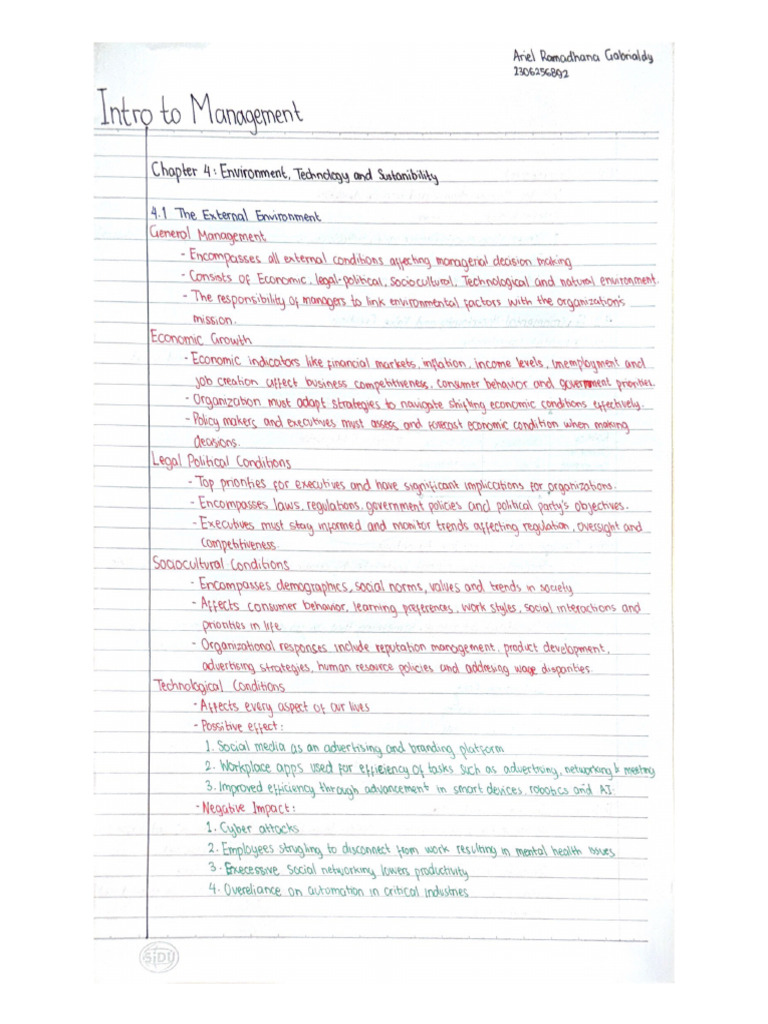 Ariel Ramadhana Gabrialdy
2306256892
Intro to Management
Chapter 4: Environment, Technology and Sustanibility
4.1 The External Environment
General Management
- Encompasses all external conditions affecting managerial decision making
- Consists of Economic, legal-political, sociocultural, Technological and natural environment.
- The responsibility of managers to link environmental factors with the organization's
mission.
Economic Growth
- Economic indicators like financial markets, inflation, income levels, unemployment and
job creation affect business competitiveness, consumer behavior and government priorities.
- Organization must adapt strategies to navigate shifting economic conditions effectively.
- Policy makers and executives must assess and forecast economic condition when making
decisions.
Legal Political Conditions
- Top priorities for executives and have significant implications for organizations.
- Encompasses laws, regulations, government policies and political party's objectives.
- Executives must stay informed and monitor trends affecting regulation, oversight and
competitiveness
Sociocultural Conditions
- Encompasses demographics, social norms, values and trends in society
- Affects consumer behavior, learning preferences, work styles, social interactions and
priorities in life
- Organizational responses include reputation management, product development,
advertising strategies, human resource policies and addresing wage disparities.
Technological Conditions
- Affects every aspect of our lives
- Possitive effect:
1. Social media as an advertising and branding platform
2. Workplace apps used for efficiency of tasks such as advertising, networking & meeting
3. Improved efficiency through advancement in smart devices, robotics and AI
- Negative Impact:
1. Cyber attacks
2. Employees strugling to disconnect from work resulting in mental health issues
3. Execessive social networking lowers productivity
4. Overeliance on automation in critical industries
SiDU